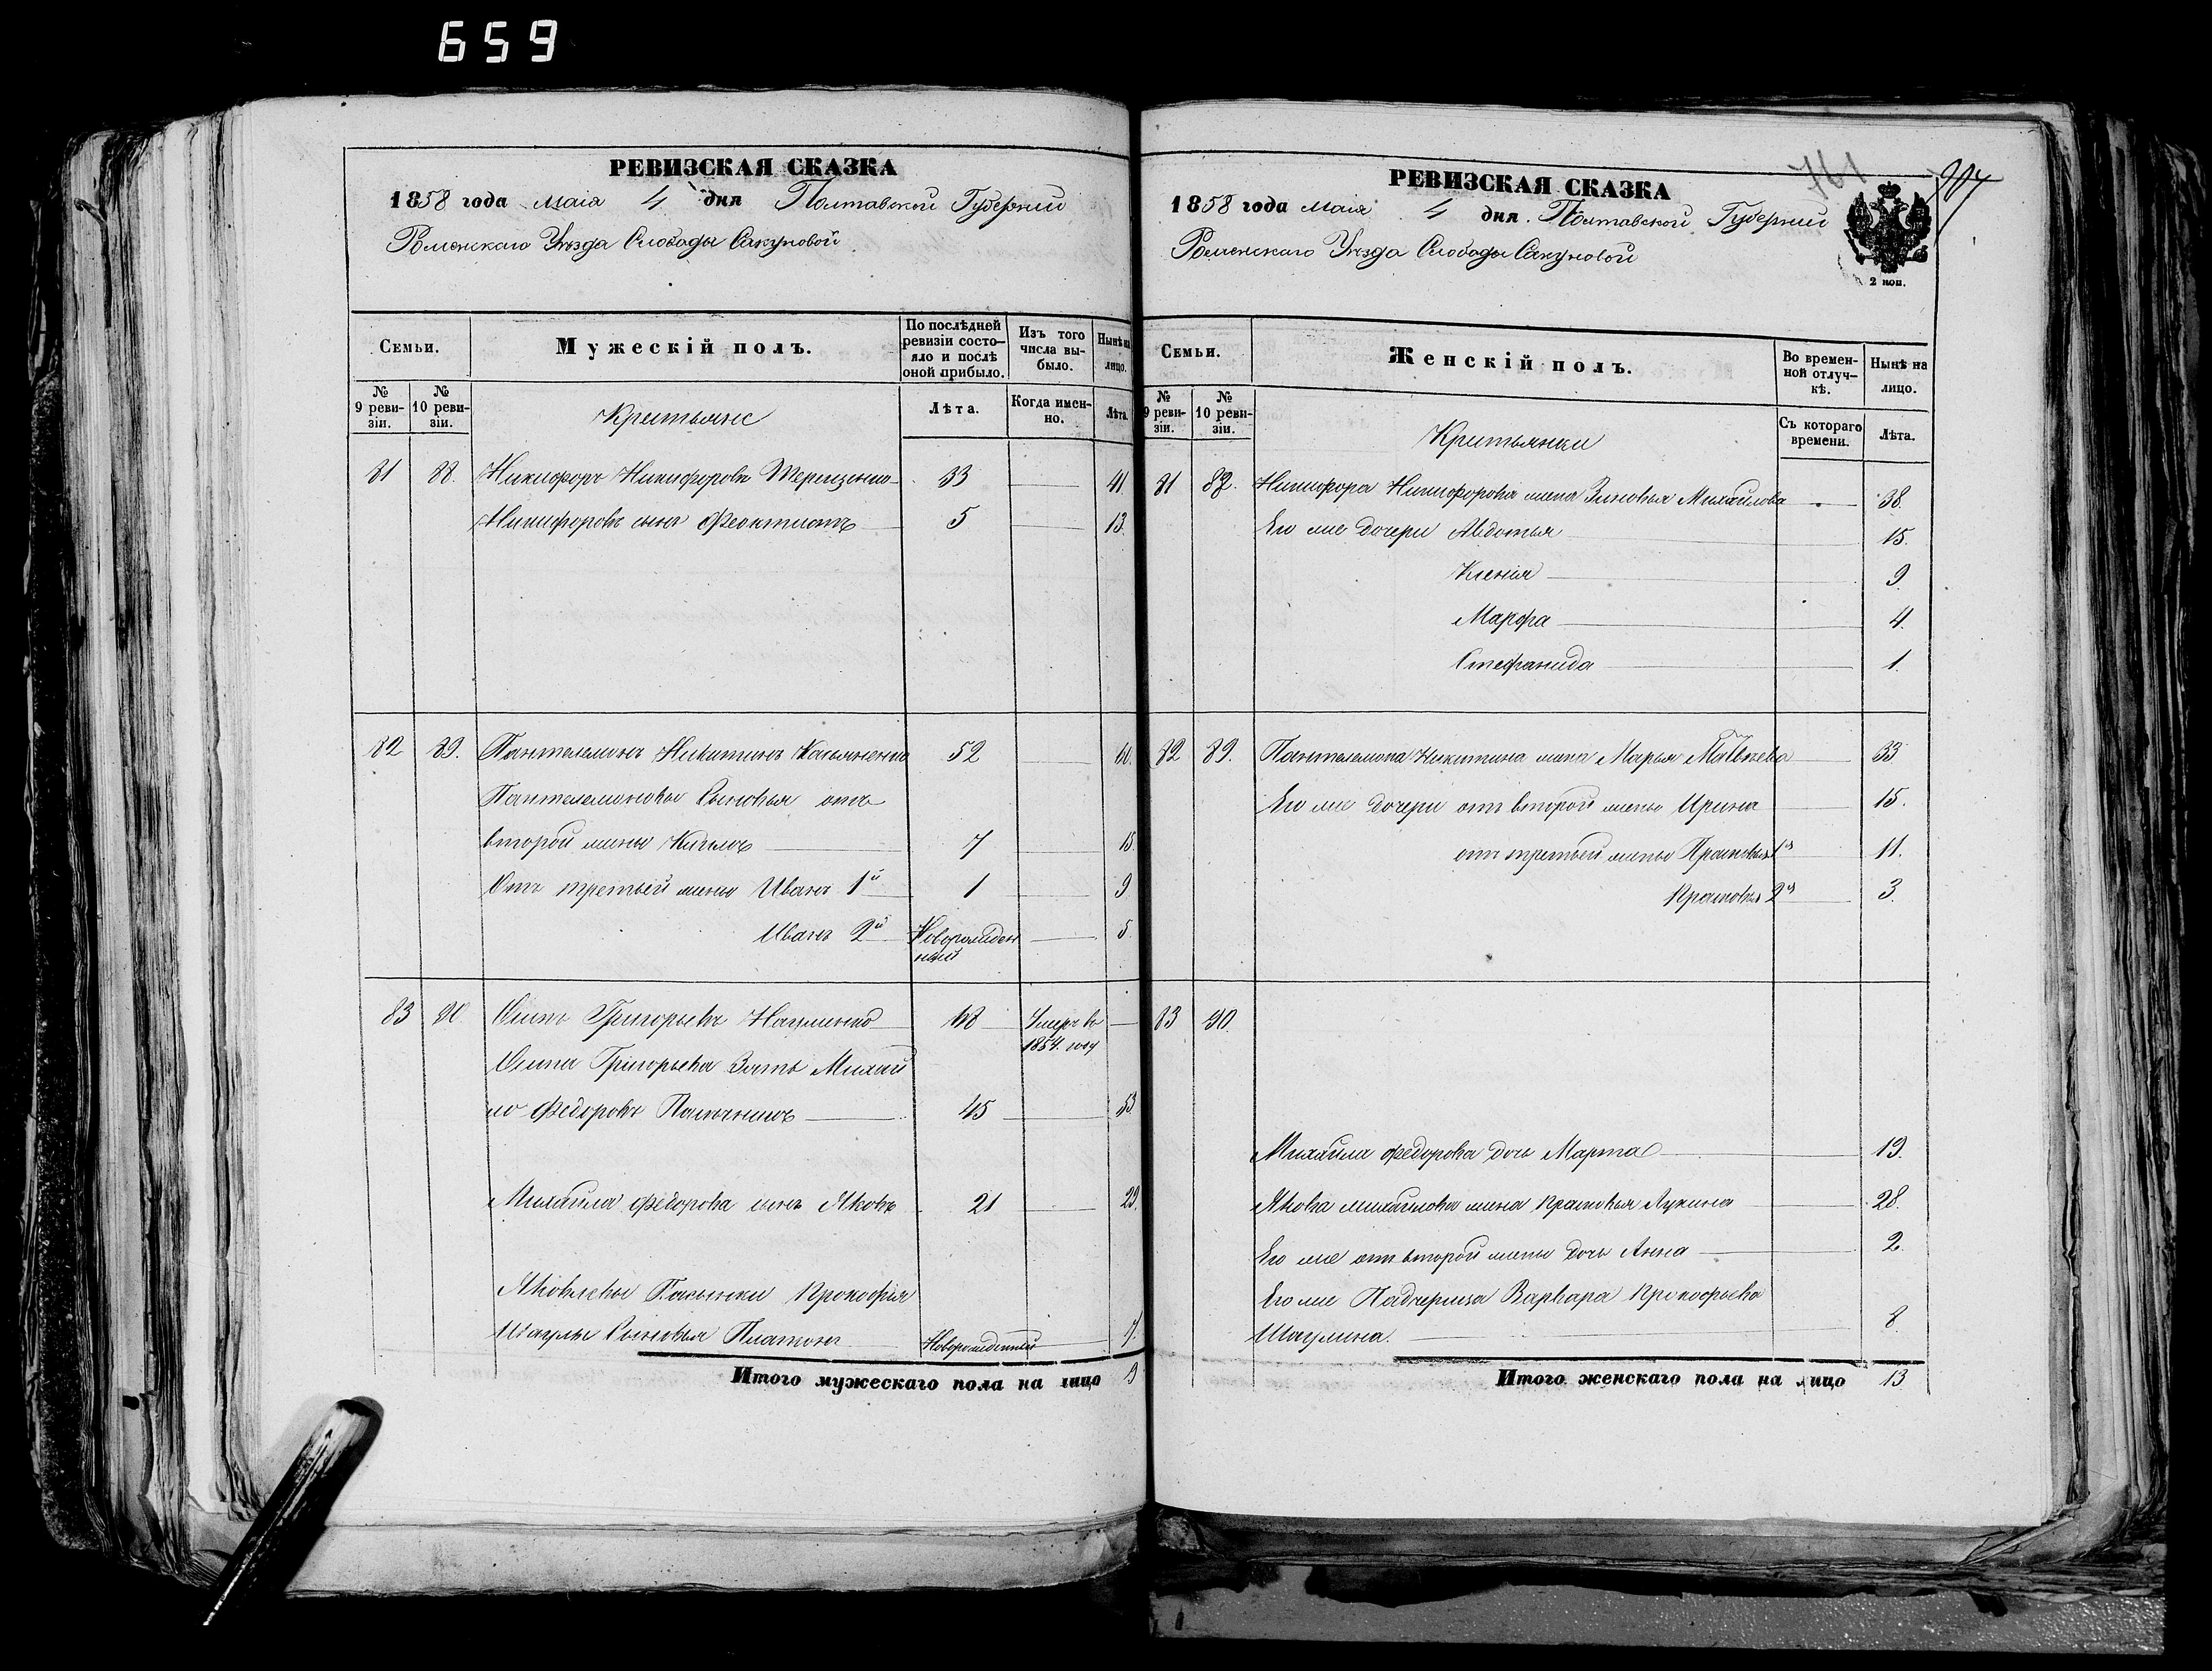 659
РЕВИЗСКАЯ СКАЗКА
1858 года маія 4 дня Полтавской Губерніи
Роменскаго Уѣзда Слободы Сакуновой
Семьи.
Мужескій полъ.
По послѣдней ревизіи состояло и послѣ оной прибыло.
Изъ того числа выбыло.
Нынѣ на лицо.
№ 9 ревизіи.
№ 10 ревизіи.
Крестьяне
Лѣта.
Когда именно.
Лѣта.
81 88. Никифоръ Никифоровъ Терещенко 33 41.
Никифоровъ сынъ Феоктистъ 5 13.
82 89. Пантелемонъ Никитинъ Касьяненко 52 60.
Пантелемоновы Сыновья отъ
второй жены 7 15
Отъ третьей жены Иванъ 1й 1 9
Иванъ 2й Новорожденный 5
83 90 Осипъ Григорьевъ Науменко 48 Умеръ въ 1854. году
Осипа Григорьева Зять Михай
ло Федоровъ 45 53
Михайла Федорова сынъ Яковъ 21 29.
Яковлевы Пасынки Прокофія
Шагулы Сыновья Платонъ Новорожденный 7.
Итого мужескаго пола на лицо 9
РЕВИЗСКАЯ СКАЗКА
761
1858 года маія 4 дня. Полтавской Губерніи
Роменскаго Уѣзда Слободы Сакуновой
2 коп.
Семьи.
Женскій полъ.
Во временной отлучкѣ.
Нынѣ на лицо.
№ 9 ревизіи.
№ 10 ревизіи.
Крестьянки
Съ котораго времени.
Лѣта.
81 88. Никифора Никифорова жена Зиновья Михайлова 38.
Его же дочери Авдотья 15.
Ксенія 9.
Марфа 4.
Стефанида 1.
82 89. Пантелемона Никитина жена Марья Матвѣева 33
Его же дочери отъ второй жены Ирина 15.
отъ третьей жены Прасковья 1я 11.
Прасковья 2я 3.
83 90.
Михайла Федорова дочь Марта 19.
Якова Михайлова жена Прасковья Лукина 28.
Его же отъ второй жены дочь Анна 2.
Его же Падчерица Варвара Прокофьева
Шагулина. 8.
Итого женскаго пола на лицо 13